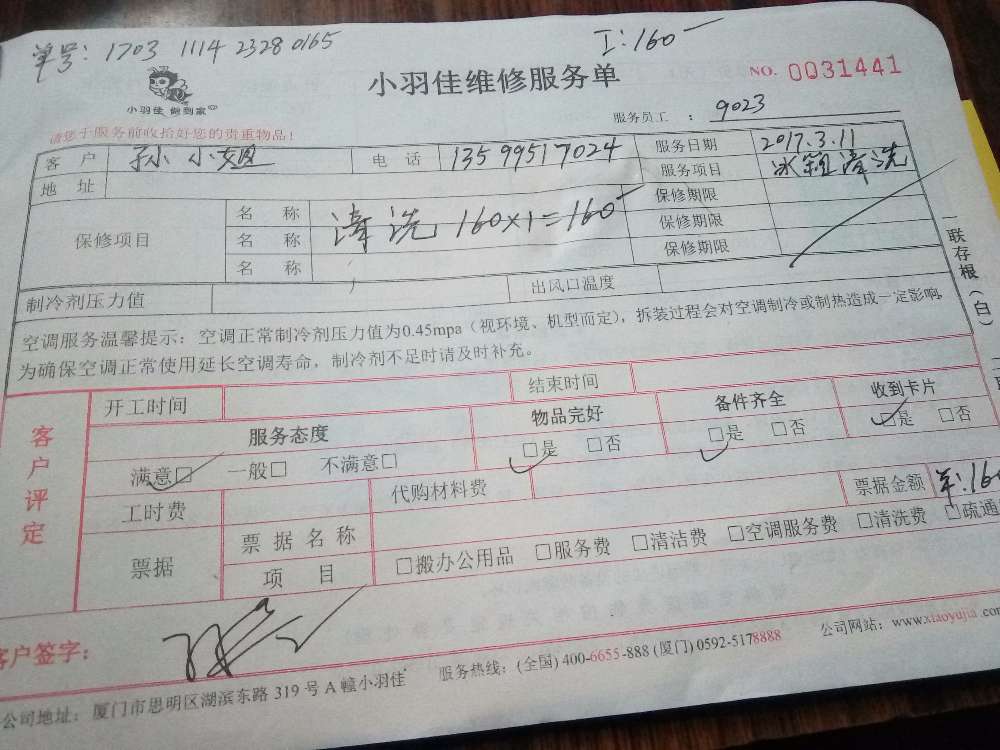 单号：1703 1114 2328 0165
工：160
小羽佳 做到家
小羽佳维修服务单
NO. 0031441
请您于服务前收拾好您的贵重物品！
服务员工：9023
客户 孙小姐 电话 13599517024 服务日期 2017.3.11
地址 服务项目 冰箱清洗
保修项目
名称 清洗 160×1=160 保修期限
名称 保修期限
名称 保修期限
制冷剂压力值 出风口温度
一联存根（白）
空调服务温馨提示：空调正常制冷剂压力值为0.45mpa（视环境、机型而定），拆装过程会对空调制冷或制热造成一定影响，
为确保空调正常使用延长空调寿命，制冷剂不足时请及时补充。
客户评定
开工时间 结束时间
服务态度 物品完好 备件齐全 收到卡片
满意□ 一般□ 不满意□ □是 □否 □是 □否 □是 □否
工时费 代购材料费 票据金额 ¥:160
票据
票据名称
项目 □搬办公用品 □服务费 □清洁费 □空调服务费 □清洗费 □疏通
客户签字：
公司地址：厦门市思明区湖滨东路 319 号 A 幢小羽佳 服务热线：(全国) 400-6655-888 (厦门) 0592-5178888 公司网站：www.xiaoyujia.com